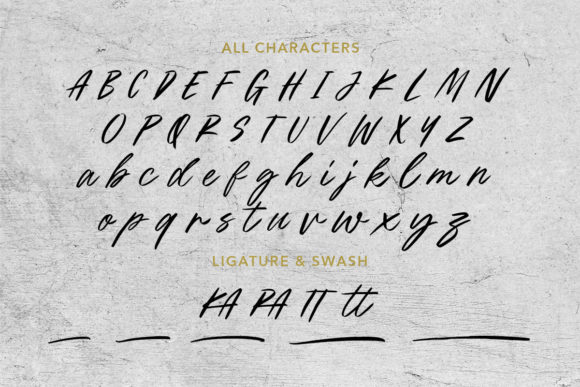 ALL CHARACTERS
A B C D E F G H I J K L M N
O P Q R S T U V W X Y Z
a b c d e f g h i j k l m n
o p q r s t u v w x y z
LIGATURE & SWASH
KA RA TT tt